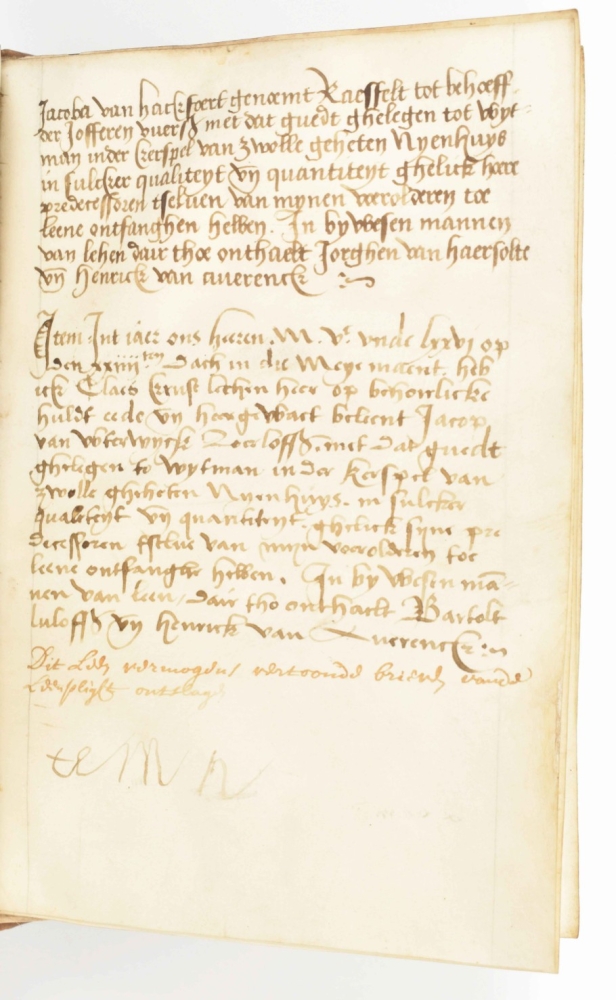 Jacoba van hackfoert genoemt Raesffelt tot behoeff
der Jofferen vuersz met dat guedt ghelegen tot wyt-
man inder kerspel van zwolle geheten Nyenhuys
in sulcker qualiteyt vn quantiteyt ghelick hoere
predecessoren tseluen van mynen voerolderen toe
leene ontfanghen hebben. In bywesen mannen
van lehen dair thoe onthaelt Jorghen van haersolte
vn Henrick van auerenck
Item Int iaer ons heren. M. Vc. vnde lxxvi op
den xxiiiiten Dach in die Meye maent. heb
ick Claes Kruse lehen heer op behoirlicke
huldt eede vn heergewaet belient Jacop
van wterwyck Roeloffs. met dat guedt
ghelegen to wytman in der kerspel van
zwolle gheheten Nyenhuys. in sulcker
qualiteyt vn quantiteyt. ghelick syne pre
decessoren tselue van myn voerolderen toe
leene ontfanghe hebben. In by wesen ma-
nen van leen, dair tho onthaelt Bartolt
luloffs vn Henrick van Auerencke
Dit Leen vermogens vertoonde brieven
Leenplight ontslagen